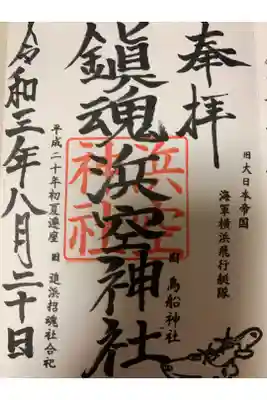 奉拝
旧大日本帝国
海軍横浜飛行艇隊
鎮魂浜空神社
浜空
神社
旧鳥船神社
平成二十年初夏遷座 旧追浜招魂社合祀
令和三年八月二十日